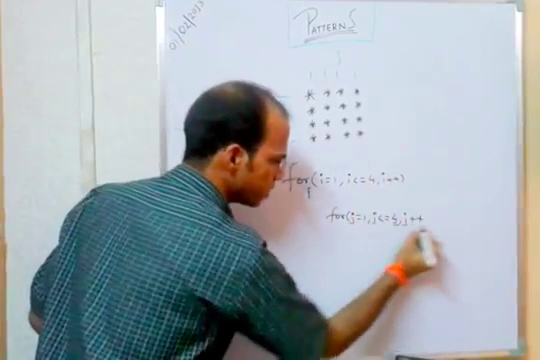 01/02/2013
PATTERNS
j
1 1 1 1
* * * *
* * * *
* * * *
* * * *
for(i=1, i<=4, i++)
for(j=1, j<=4, j++